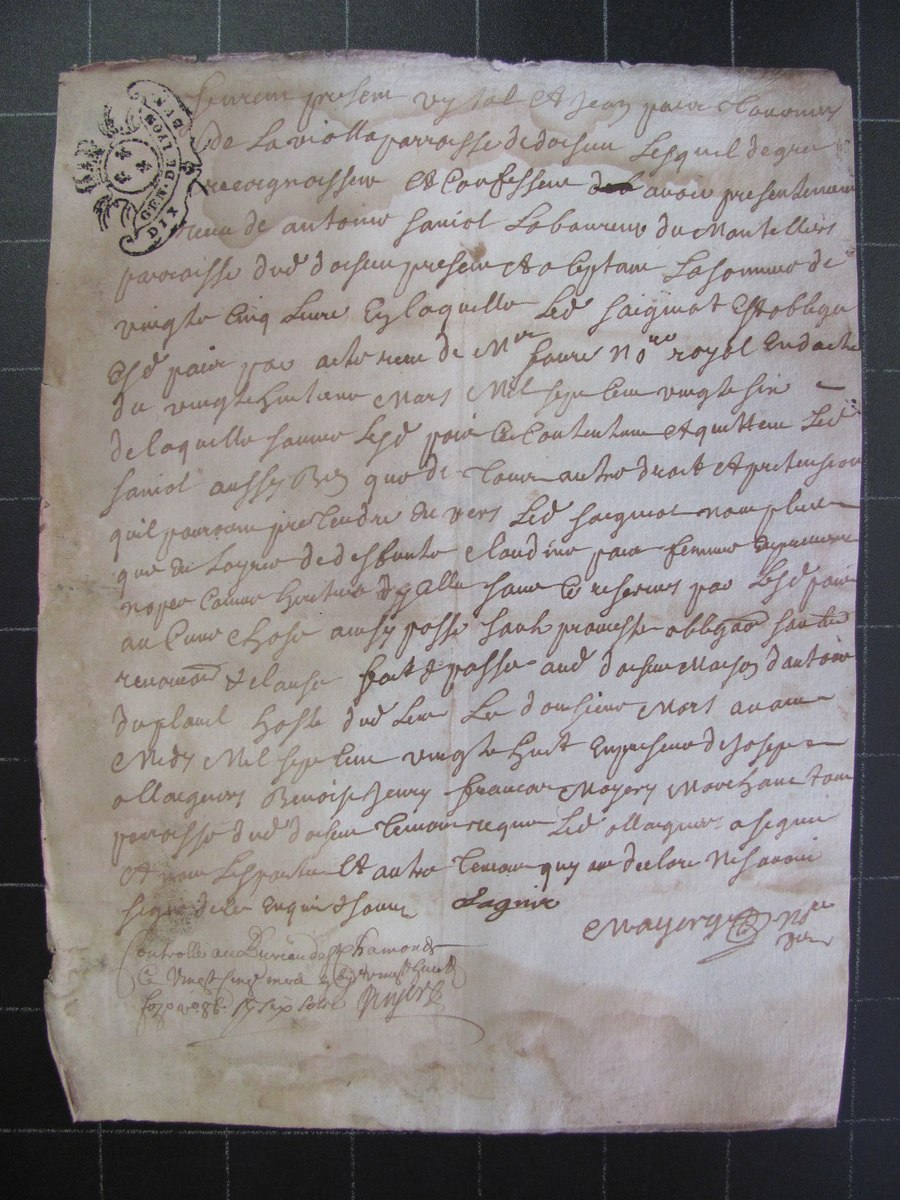 GEN. DE LYON
DIX
furent present vytal et Jean pair
de La violla parroisse de doisieu Lesquel de gre
recognoissent et Confessent avoir presentement
receu de antoine saniol Laboureur du Montelliers
parroisse dud doisieu present et aceptant La somme de
vingte cinq Livre En laquelle Led saigniol Est oblige
Esd pair par acte receu de Mre faure Nore royal En datte
du vingte huitieme Mars Mil sept Cent vingte six
de laquelle somme Lesd pair ce Contentent et quittent Led
saniol aussy Bien que de tous autre droit et pretension
quil pourroint pretendre Envers Led saigniol non plus
que de de deffunte Claudine pair femme
Comme heritier d y celle sans ce reserver par Lesd pair
au Cune Chose ainsy passe sauf promesse obligaon
renonciaon et clause fait et passe aud doisieu Maison d antoine
duplomb hoste dud Lieu Le dousieme Mars avant
Midy Mil sept Cent vingte huit En presence de Joseph
ollaignier Benoist henry francois Mayery Marchant tous
parroisse dud doisieu temoin requis Led ollaignier a signe
Et non Les partie Et autre temoin quy ont declare Ne savoir
signer de ce Enquis et somme Lagnier
Mayery Nore
Controlle au Bureau de St Chamond
Ce Vingt cinq mars vingt huit
fo vo 86. six sols